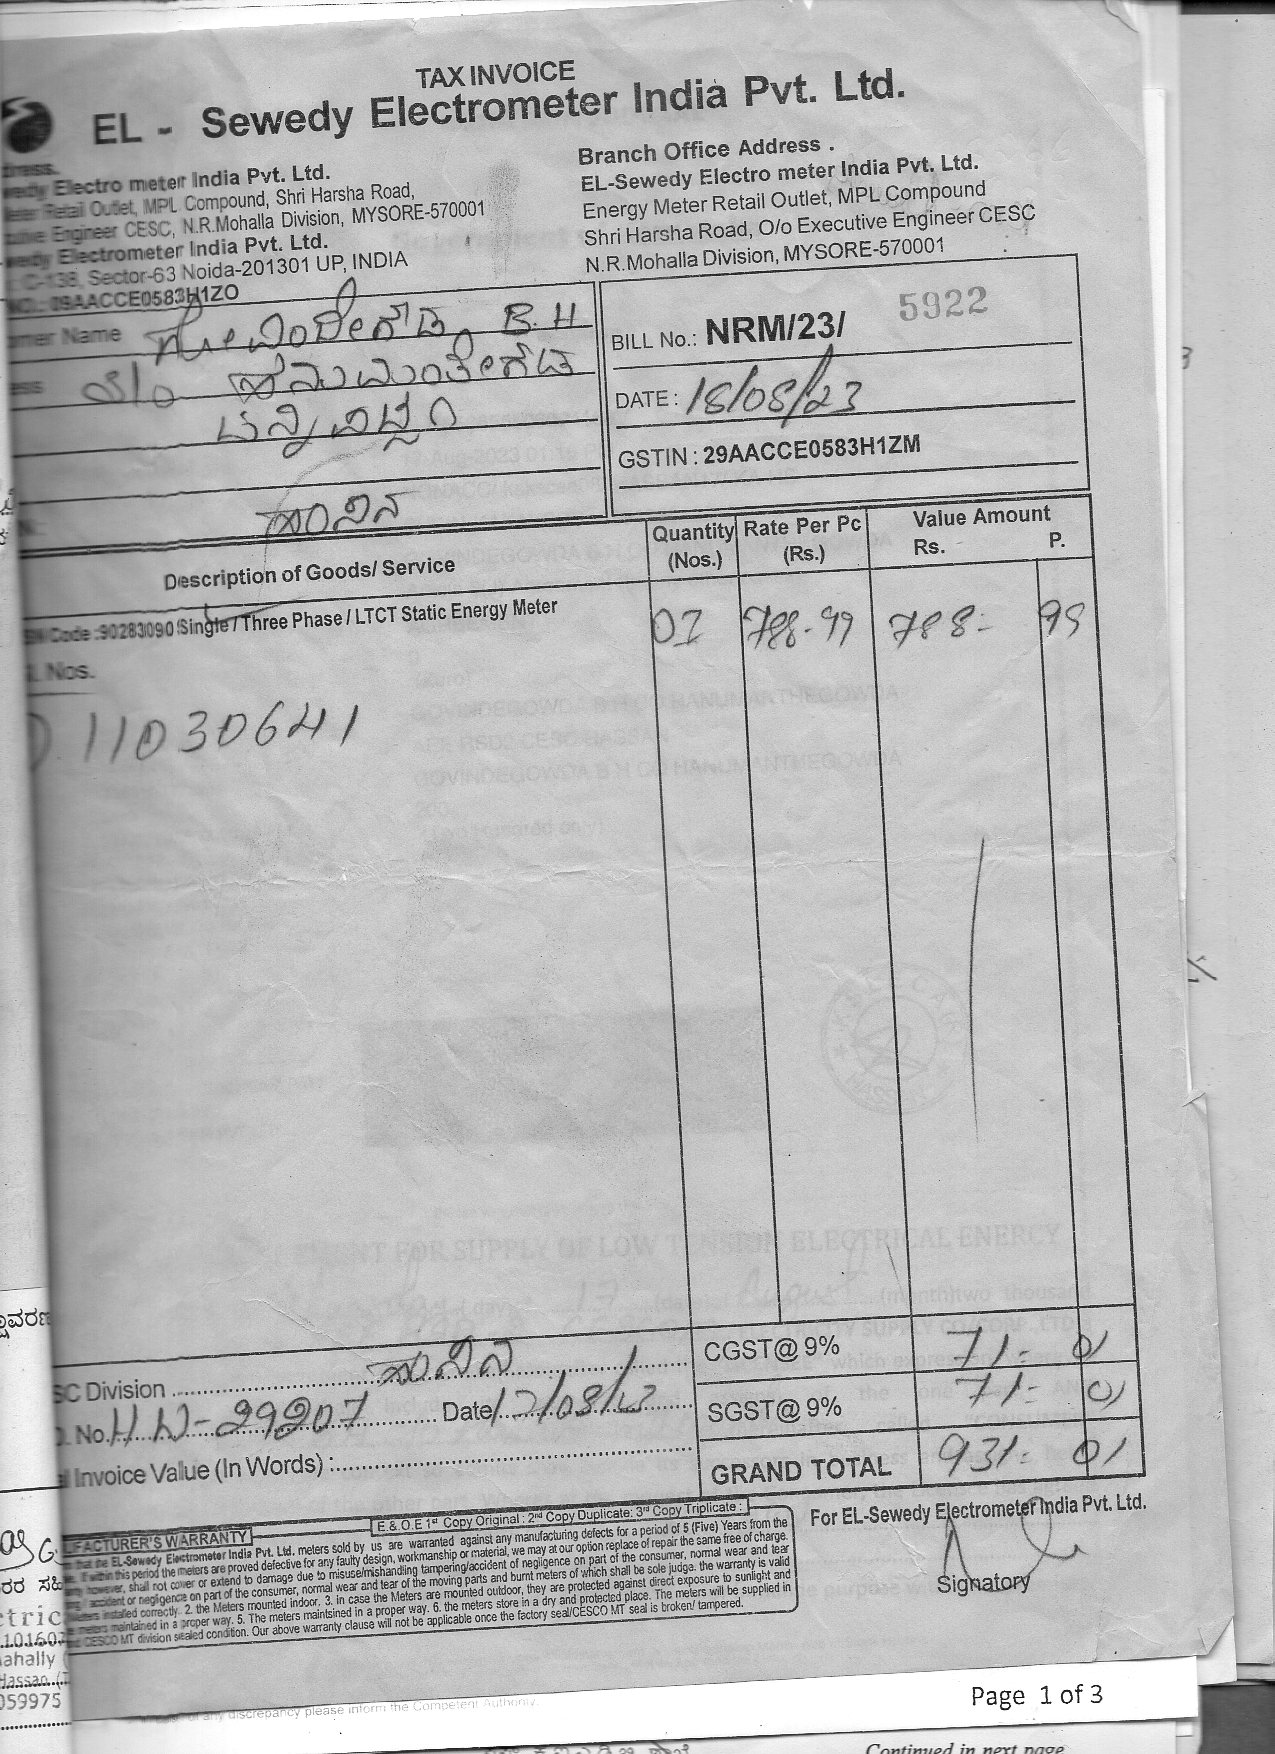 TAX INVOICE
EL - Sewedy Electrometer India Pvt. Ltd.
Electro meter India Pvt. Ltd.
Retail Outlet, MPL Compound, Shri Harsha Road,
Engineer CESC, N.R.Mohalla Division, MYSORE-570001
Electrometer India Pvt. Ltd.
C-138, Sector-63 Noida-201301 UP, INDIA
29AACCE0583H1ZO
Branch Office Address .
EL-Sewedy Electro meter India Pvt. Ltd.
Energy Meter Retail Outlet, MPL Compound
Shri Harsha Road, O/o Executive Engineer CESC
N.R.Mohalla Division, MYSORE-570001
Name ಗೋವಿಂದೇಗೌಡ B.H
S/o ಹನುಮಂತೇಗೌಡ
BILL No.: NRM/23/ 5922
DATE : 18/08/23
GSTIN : 29AACCE0583H1ZM
ಹಾಸನ
Description of Goods/ Service
Quantity (Nos.)
Rate Per Pc (Rs.)
Value Amount
Rs. P.
Code :90283090 Single / Three Phase / LTCT Static Energy Meter
01 788-99 788- 99
Nos.
11030641
CGST@ 9% 71- 01
SGST@ 9% 71- 01
GRAND TOTAL 931- 01
SC Division ಹಾಸನ
No. Date
Invoice Value (In Words) :
E.& O.E 1st Copy Original : 2nd Copy Duplicate: 3rd Copy Triplicate :
FACTURER'S WARRANTY
the EL-Sewedy Electrometer India Pvt. Ltd. meters sold by us are warranted against any manufacturing defects for a period of 5 (Five) Years from the
within this period the meters are proved defective for any faulty design, workmanship or material, we may at our option replace of repair the same free of charge.
however, shall not cover or extend to damage due to misuse/mishandling tampering/accident of negligence on part of the consumer, normal wear and tear
accident or negligence on part of the consumer, normal wear and tear of the moving parts and burnt meters of which shall be sole judge. the warranty is valid
installed correctly. 2. the Meters mounted indoor, 3. in case the Meters are mounted outdoor, they are protected against direct exposure to sunlight and
maintained in a proper way. 5. The meters maintsined in a proper way. 6. the meters store in a dry and protected place. The meters will be supplied in
CESCO MT division sealed condition. Our above warranty clause will not be applicable once the factory seal/CESCO MT seal is broken/ tampered.
For EL-Sewedy Electrometer India Pvt. Ltd.
Signatory
Page 1 of 3
any discrepancy please inform the Competent Authority.
Continued in next page